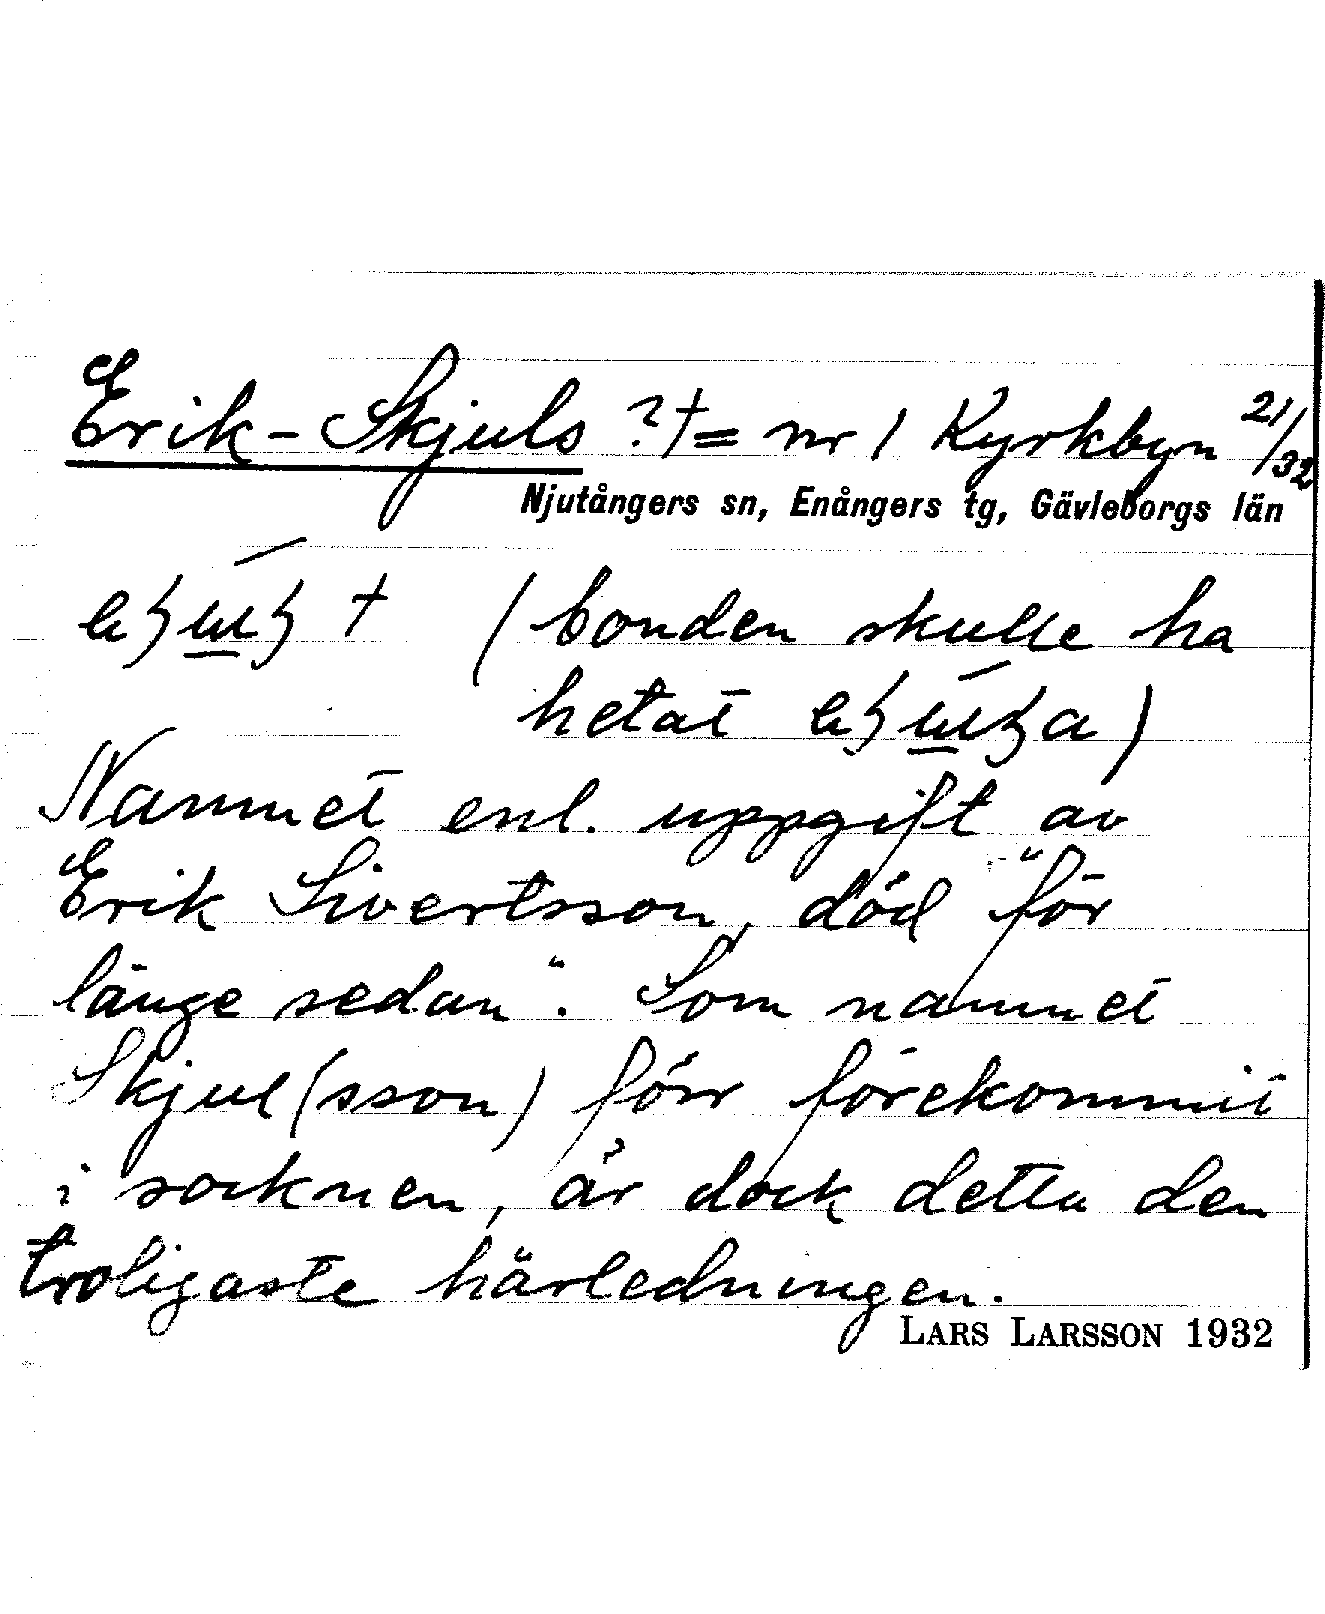 Erik-Skjuls ?† = nr 1 Kyrkbyn 21/32
Njutångers sn, Enångers tg, Gävleborgs län
† (bonden skulle ha
hetat )
Namnet enl. uppgift av
Erik Sivertsson, död "för
länge sedan". Som namnet
Skjul(sson) förr förekommit
i socknen, är dock detta den
troligaste härledningen.
LARS LARSSON 1932